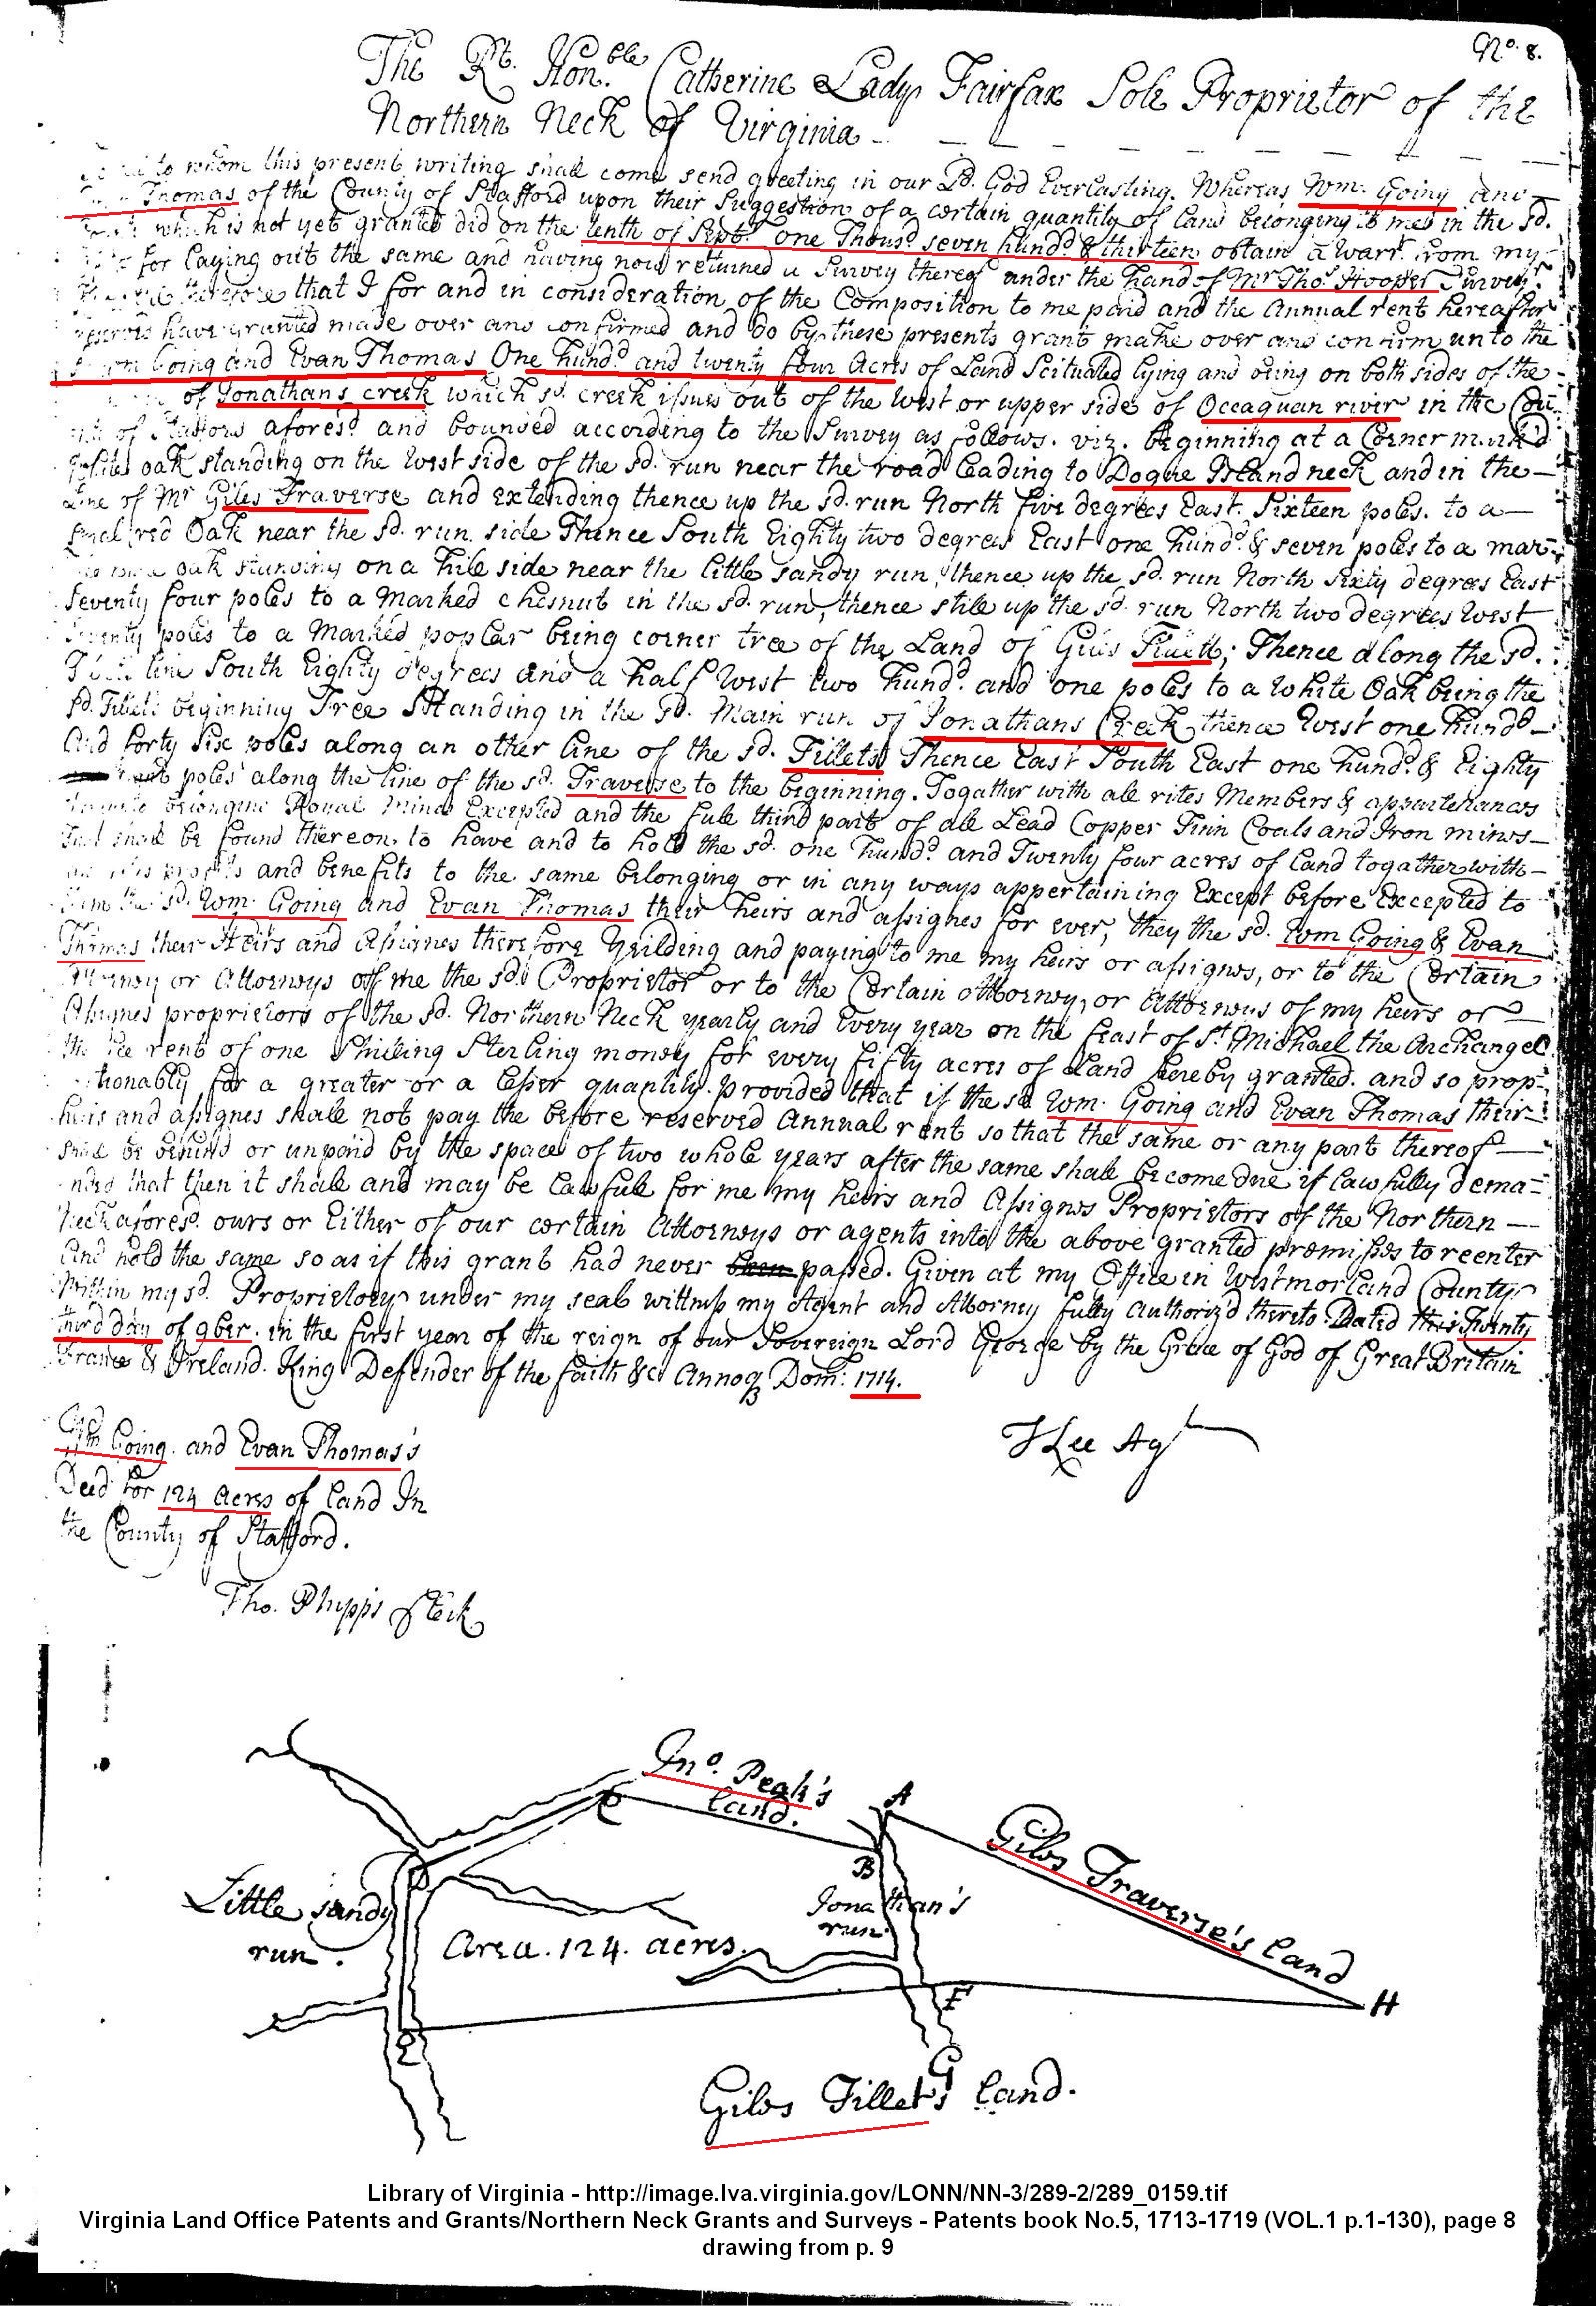 No. 8.
The Rt. Honble Catherine Lady Fairfax Sole Proprietor of the
Northern Neck of Virginia
to whom this present writing shall come send greeting in our Ld. God Everlasting. Whereas Wm. Going and
Thomas of the County of Stafford upon their Suggestion of a certain quantity of land belonging to me in the sd.
which is not yet granted did on the tenth of Septr. one Thousd seven hundd. & thirteen obtain a warrt. from my
for laying out the same and having now returned a Survey thereof under the hand of Mr Tho. Hooper Surveyr.
therefore that I for and in consideration of the Composition to me paid and the Annual rent hereafter
reserved have granted made over and confirmed and do by these presents grant make over and confirm unto the
Going and Evan Thomas One hundd and twenty four Acres of Land Scituated lying and being on both sides of the
of Jonathans creek which sd. creek issues out of the west or upper side of Occaquan river in the Cou
of Stafford aforesd. and bounded according to the Survey as follows. viz. beginning at a Corner mark'd
white oak standing on the west side of the sd. run near the road leading to Dogue Island neck and in the
Line of Mr Giles Traverse and extending thence up the sd. run North five degrees East. Sixteen poles. to a
red Oak near the sd. run side Thence South Eighty two degrees East one hundd. & seven poles to a mar=
oak standing on a hill side near the little sandy run, thence up the sd. run North Sixty degrees East
Seventy four poles to a marked chesnut in the sd. run, thence still up the sd. run North two degrees West
Seventy poles to a marked poplar being corner tree of the Land of Giles ; Thence along the sd.
line South Eighty degrees and a half West two hundd. and one poles to a White Oak being the
sd. beginning Tree Standing in the sd. Main run of Jonathans Creek thence West one hundd
and forty six poles along an other line of the sd. Fillets Thence East South East one hundd. & Eighty
poles along the line of the sd. Traverse to the beginning. Togather with all rites Members & appurtenances
belonging Royal mines Excepted and the full third part of all Lead Copper Tinn Coals and Iron mines
that shall be found thereon. to have and to hold the sd. one hundd. and Twenty four acres of land togather with
and benefits to the same belonging or in any ways appertaining Except before Excepted to
them the sd. Wm. Going and Evan Thomas their heirs and assignes for ever, they the sd. Wm Going & Evan
Thomas their Heirs and Assignes therefore Yeilding and paying to me my heirs or assignes, or to the Certain
Attorney or Attorneys off me the sd. Proprietor or to the Certain Attorney, or Attorneys of my heirs or
Assignes proprietors of the sd. Northern Neck yearly and Every year on the feast of St. Michael the Archangel
the fee rent of one Shilling Sterling money for every fifty acres of Land hereby granted. and so prop=
tionably for a greater or a lesser quantity. provided that if the sd Wm. Going and Evan Thomas their
heirs and assignes shall not pay the before reserved Annual rent so that the same or any part thereof
shall be behind or unpaid by the space of two whole years after the same shall become due if lawfully dema=
nded that then it shall and may be lawfull for me my heirs and Assignes Proprietors of the Northern
Neck aforesd. ours or Either of our certain Attorneys or agents into the above granted premisses to reenter
and hold the same so as if this grant had never been passed. Given at my Office in Westmorland County
Within my sd. Proprietory under my seal wittness my Agent and Attorney fully Authoriz'd thereto Dated this Twenty
third day of 9ber. in the first year of the reign of our Sovereign Lord George by the Grace of God of Great Britain
France & Ireland. King Defender of the faith &c Annoq Dom: 1714.
T Lee Agt
Wm Going. and Evan Thomas's
Deed for 124. Acres of Land In
the County of Stafford.
Tho. Phipps Clerk
Jno. Peak's
land.
A
C
Giles Traverse's land
B
D
Little sandy
run.
Jonathan's
run
Area. 124. acres.
F
H
E
G
Giles Fillet's land.
Library of Virginia - http://image.lva.virginia.gov/LONN/NN-3/289-2/289_0159.tif
Virginia Land Office Patents and Grants/Northern Neck Grants and Surveys - Patents book No.5, 1713-1719 (VOL.1 p.1-130), page 8
drawing from p. 9